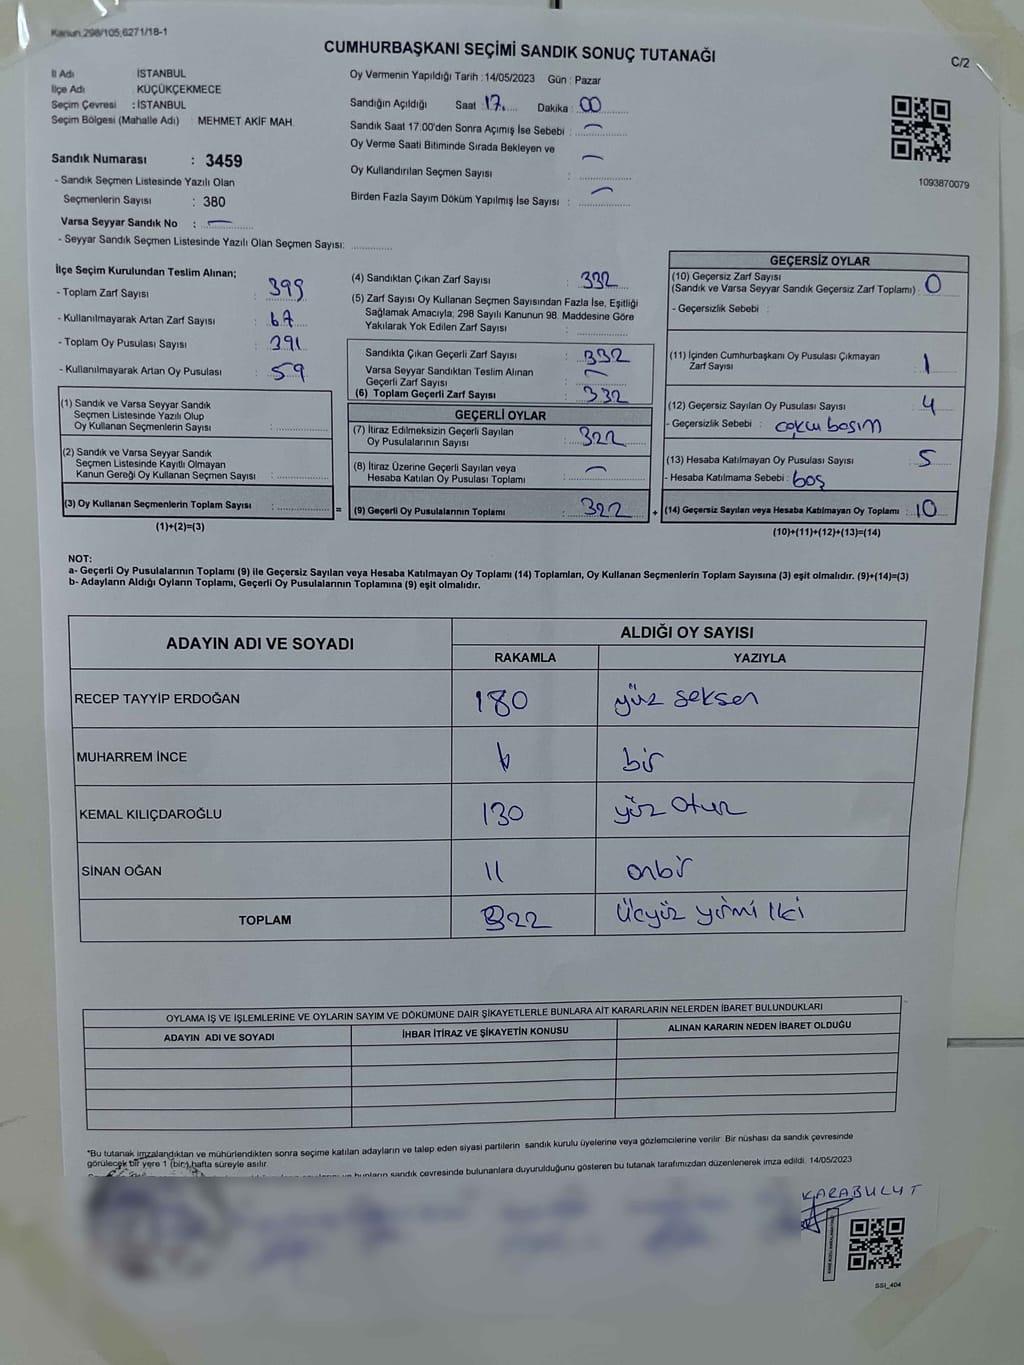 Kanun.298/105,6271/18-1
CUMHURBAŞKANI SEÇİMİ SANDIK SONUÇ TUTANAĞI
C/2
İl Adı : İSTANBUL
İlçe Adı : KÜÇÜKÇEKMECE
Seçim Çevresi : İSTANBUL
Seçim Bölgesi (Mahalle Adı) : MEHMET AKİF MAH.
Sandık Numarası : 3459
- Sandık Seçmen Listesinde Yazılı Olan
Seçmenlerin Sayısı : 380
Varsa Seyyar Sandık No : —
- Seyyar Sandık Seçmen Listesinde Yazılı Olan Seçmen Sayısı:
Oy Vermenin Yapıldığı Tarih : 14/05/2023 Gün : Pazar
Sandığın Açıldığı Saat : 17 Dakika : 00
Sandık Saat 17:00'den Sonra Açımış İse Sebebi : —
Oy Verme Saati Bitiminde Sırada Bekleyen ve
Oy Kullandırılan Seçmen Sayısı : —
Birden Fazla Sayım Döküm Yapılmış İse Sayısı : —
1093870079
İlçe Seçim Kurulundan Teslim Alınan;
- Toplam Zarf Sayısı : 399
- Kullanılmayarak Artan Zarf Sayısı : 67
- Toplam Oy Pusulası Sayısı : 391
- Kullanılmayarak Artan Oy Pusulası : 59
(1) Sandık ve Varsa Seyyar Sandık
Seçmen Listesinde Yazılı Olup
Oy Kullanan Seçmenlerin Sayısı :
(2) Sandık ve Varsa Seyyar Sandık
Seçmen Listesinde Kayıtlı Olmayan
Kanun Gereği Oy Kullanan Seçmen Sayısı :
(3) Oy Kullanan Seçmenlerin Toplam Sayısı : =
(1)+(2)=(3)
(4) Sandıktan Çıkan Zarf Sayısı : 332
(5) Zarf Sayısı Oy Kullanan Seçmen Sayısından Fazla İse, Eşitliği
Sağlamak Amacıyla; 298 Sayılı Kanunun 98. Maddesine Göre
Yakılarak Yok Edilen Zarf Sayısı :
Sandıkta Çıkan Geçerli Zarf Sayısı : 332
Varsa Seyyar Sandıktan Teslim Alınan
Geçerli Zarf Sayısı : —
(6) Toplam Geçerli Zarf Sayısı : 332
GEÇERLİ OYLAR
(7) İtiraz Edilmeksizin Geçerli Sayılan
Oy Pusulalarının Sayısı : 322
(8) İtiraz Üzerine Geçerli Sayılan veya
Hesaba Katılan Oy Pusulası Toplamı : —
(9) Geçerli Oy Pusulalarının Toplamı : 322 +
GEÇERSİZ OYLAR
(10) Geçersiz Zarf Sayısı
(Sandık ve Varsa Seyyar Sandık Geçersiz Zarf Toplamı) : 0
- Geçersizlik Sebebi :
(11) İçinden Cumhurbaşkanı Oy Pusulası Çıkmayan
Zarf Sayısı : 1
(12) Geçersiz Sayılan Oy Pusulası Sayısı : 4
- Geçersizlik Sebebi :
(13) Hesaba Katılmayan Oy Pusulası Sayısı : 5
- Hesaba Katılmama Sebebi : boş
(14) Geçersiz Sayılan veya Hesaba Katılmayan Oy Toplamı : 10
(10)+(11)+(12)+(13)=(14)
NOT:
a- Geçerli Oy Pusulalarının Toplamı (9) ile Geçersiz Sayılan veya Hesaba Katılmayan Oy Toplamı (14) Toplamları, Oy Kullanan Seçmenlerin Toplam Sayısına (3) eşit olmalıdır. (9)+(14)=(3)
b- Adayların Aldığı Oyların Toplamı, Geçerli Oy Pusulalarının Toplamına (9) eşit olmalıdır.
ADAYIN ADI VE SOYADI
ALDIĞI OY SAYISI
RAKAMLA YAZIYLA
RECEP TAYYİP ERDOĞAN 180 yüz seksen
MUHARREM İNCE 1 bir
KEMAL KILIÇDAROĞLU 130 yüz otuz
SİNAN OĞAN 11 onbir
TOPLAM 322 Üçyüz yirmi İki
OYLAMA İŞ VE İŞLEMLERİNE VE OYLARIN SAYIM VE DÖKÜMÜNE DAİR ŞİKAYETLERLE BUNLARA AİT KARARLARIN NELERDEN İBARET BULUNDUKLARI
ADAYIN ADI VE SOYADI İHBAR İTİRAZ VE ŞİKAYETİN KONUSU ALINAN KARARIN NEDEN İBARET OLDUĞU
*Bu tutanak imzalandıktan ve mühürlendikten sonra seçime katılan adayların ve talep eden siyasi partilerin sandık kurulu üyelerine veya gözlemcilerine verilir. Bir nüshası da sandık çevresinde
görülecek bir yere 1 (bir) hafta süreyle asılır.
bunların sandık çevresinde bulunanlara duyurulduğunu gösteren bu tutanak tarafımızdan düzenlenerek imza edildi. 14/05/2023
KARABULUT
SSI_404